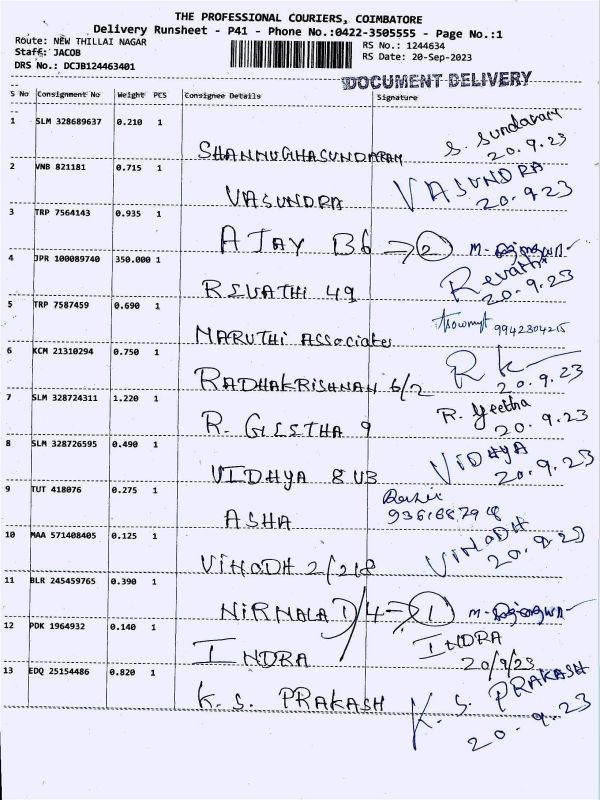 THE PROFESSIONAL COURIERS, COIMBATORE
Delivery Runsheet - P41 - Phone No.:0422-3505555 - Page No.:1
Route: NEW THILLAI NAGAR
RS No.: 1244634
Staff: JACOB
RS Date: 20-Sep-2023
DRS No.: DCJB124463401
DOCUMENT DELIVERY
S No Consignment No Weight PCS Consignee Details Signature
1 SLM 328689637 0.210 1 SHANNUGHASUNDARAM S. Sundaram 20.9.23
2 VNB 821181 0.715 1 VASUNDRA VASUNDRA 20.9.23
3 TRP 7564143 0.935 1 AJAY B6 → 2
4 JPR 100089740 350.000 1 REVATHI 49 Revathi 20.9.23
5 TRP 7587459 0.690 1 MARUTHI Associates 9942304215
6 KCM 21310294 0.750 1 RADHAKRISHNAN 6/2 R K 20.9.23
7 SLM 328724311 1.220 1 R. GEETHA 9 R. Geetha 20.9.23
8 SLM 328726595 0.490 1 VIDHYA 8 U3 VIDHYA 20.9.23
9 TUT 418076 0.275 1 ASHA
10 MAA 571408405 0.125 1 VINODH 2/218 VINODH 20.9.23
11 BLR 245459765 0.390 1 NIRMALA 1/4 → 1
12 PDK 1964932 0.140 1 INDRA INDRA 20/9/23
13 EDQ 25154486 0.820 1 K. S. PRAKASH K. S. PRAKASH 20.9.23